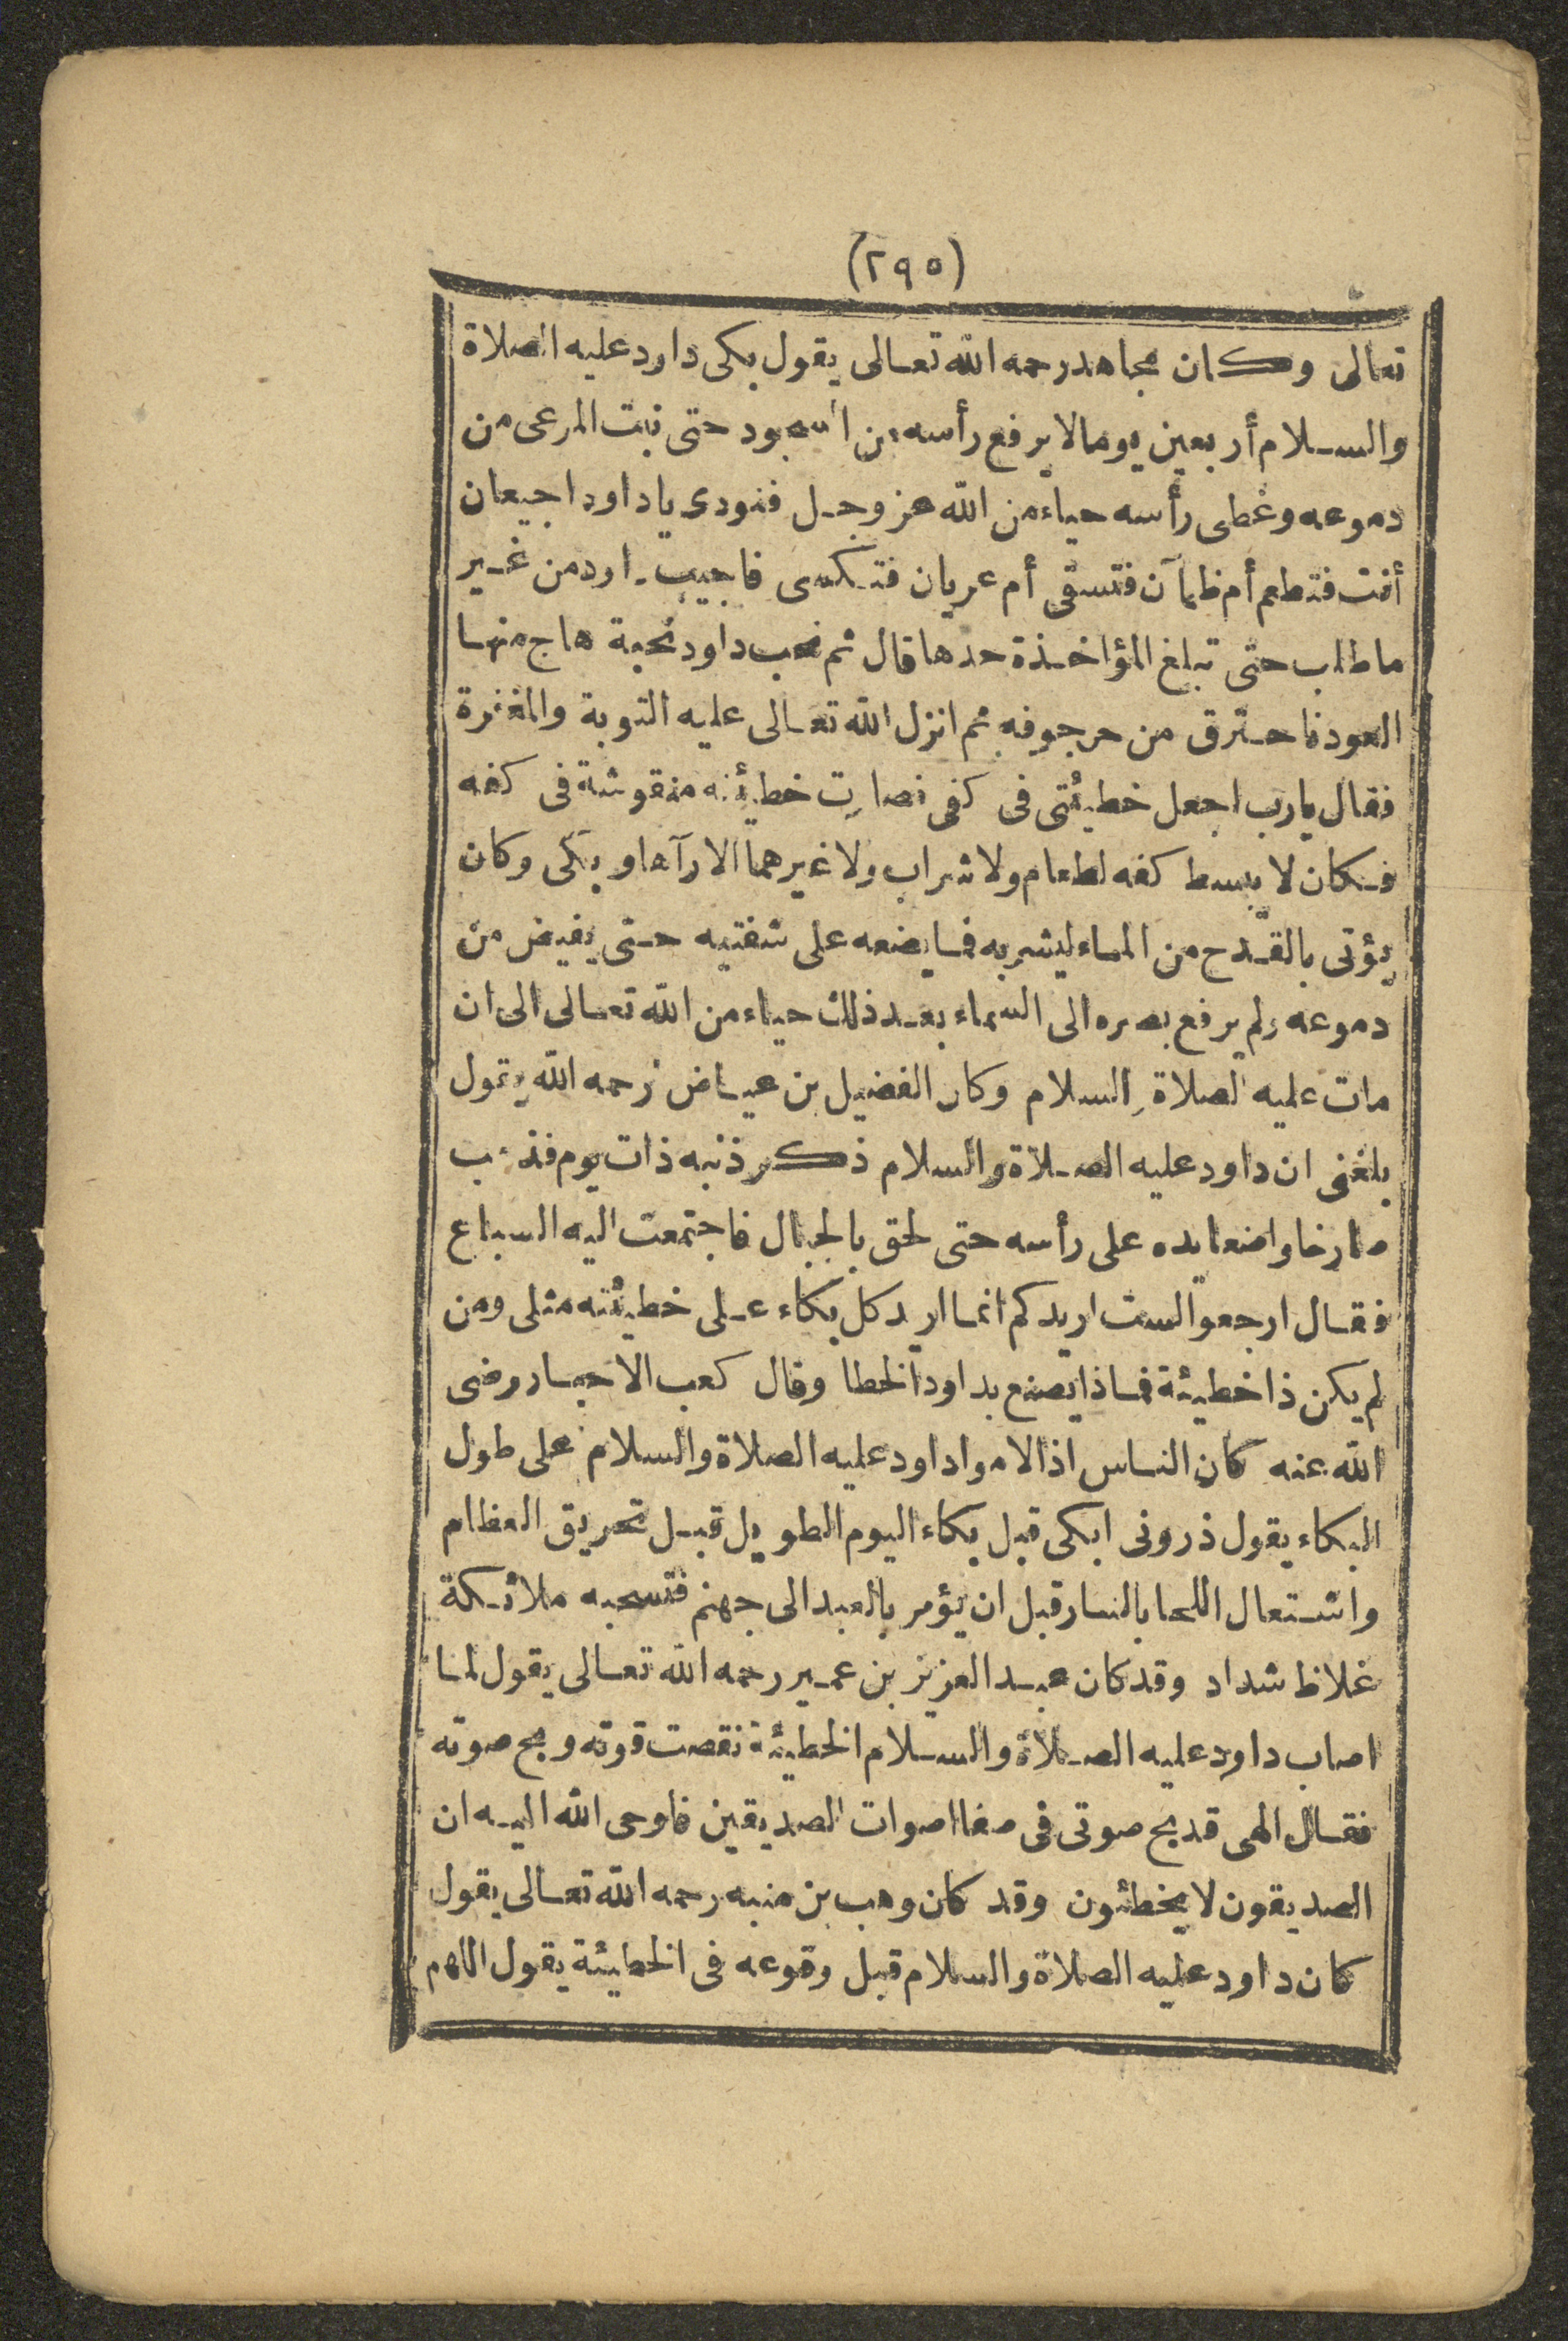 (٢٩٥)
تعالى وكان مجاهد رحمه الله تعالى يقول بكى داود عليه الصلاة
والسلام أربعين يوما لا يرفع رأسه من السجود حتى نبت المرعى من
دموعه وغطى رأسه حياء من الله عز وجل فنودى يا داود اجيعان
أنت فتطعم أم ظمآن فتسقى أم عريان فتكسى فاجيب داود من غير
ما طلب حتى تبلغ المؤاخذة حدها قال ثم نحب داود نحبة هاج منها
العود فاحترق من حر جوفه ثم انزل الله تعالى عليه التوبة والمغفرة
فقال يا رب اجعل خطيئتى فى كفى فصارت خطيئته منقوشة فى كفه
فكان لا يبسط كفه لطعام ولا شراب ولا غيرهما الا رآها وبكى وكان
يؤتى بالقدح من الماء ليشربه فما يضعه على شفتيه حتى يفيض من
دموعه ولم يرفع بصره الى السماء بعد ذلك حياء من الله تعالى الى ان
مات عليه الصلاة والسلام وكان الفضيل بن عياض رحمه الله يقول
بلغنى ان داود عليه الصلاة والسلام ذكر ذنبه ذات يوم فذهب
صارخا واضعا يده على رأسه حتى لحق بالجبال فاجتمعت اليه السباع
فقال ارجعوا لست اريدكم انما اريد كل بكاء على خطيئته مثلى ومن
لم يكن ذا خطيئة فماذا يصنع بداود الخطا وقال كعب الاحبار رضى
الله عنه كان الناس اذا لاموا داود عليه الصلاة والسلام على طول
البكاء يقول ذرونى ابكى قبل بكاء اليوم الطويل قبل تحريق العظام
واشتعال اللحا بالنار قبل ان يؤمر بالعبد الى جهنم فتسحبه ملائكة
غلاظ شداد وقد كان عبد العزيز بن عمير رحمه الله تعالى يقول لما
اصاب داود عليه الصلاة والسلام الخطيئة نقصت قوته وبح صوته
فقال الهى قد بح صوتى فى صفا اصوات الصديقين فاوحى الله اليه ان
الصديقون لا يخطئون وقد كان وهب بن منبه رحمه الله تعالى يقول
كان داود عليه الصلاة والسلام قبل وقوعه فى الخطيئة يقول اللهم